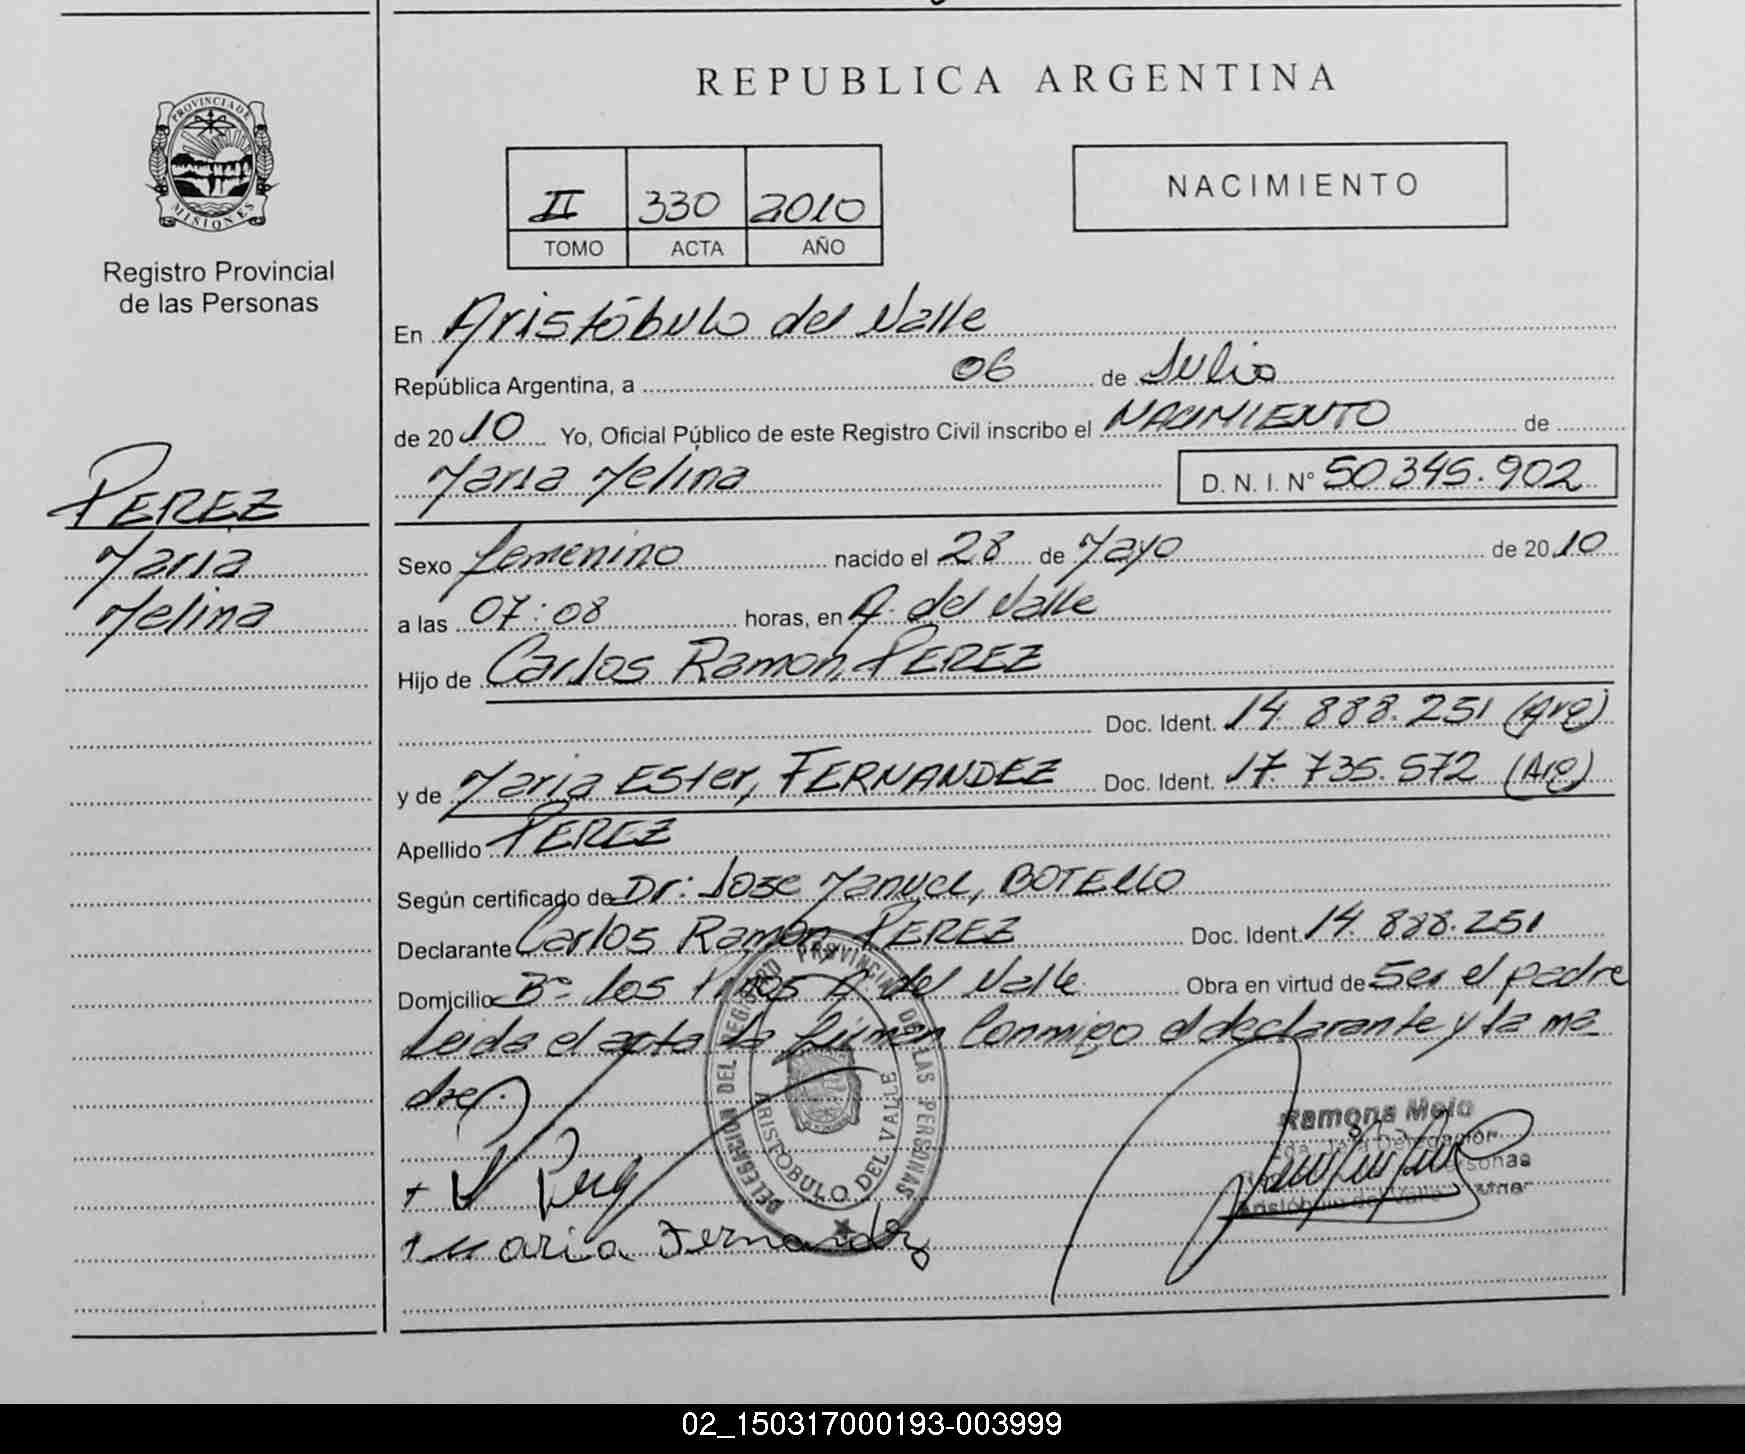 REPUBLICA ARGENTINA
PROVINCIA DE
MISIONES
Registro Provincial
de las Personas
II 330 2010
TOMO ACTA AÑO
NACIMIENTO
PEREZ
Maria
Melina
En Aristóbulo del Valle
República Argentina, a 06 de Julio
de 2010 Yo, Oficial Público de este Registro Civil inscribo el NACIMIENTO de
Maria Melina D. N. I. N° 50345.902
Sexo femenino nacido el 28 de Mayo de 2010
a las 07:08 horas, en A. del Valle
Hijo de Carlos Ramon, PEREZ
Doc. Ident. 14.888.251 (Arg)
y de Maria Ester, FERNANDEZ Doc. Ident. 17.735.572 (Arg)
Apellido PEREZ
Según certificado de Dr: Jose Manuel, BOTELLO
Declarante Carlos Ramon, PEREZ Doc. Ident. 14.888.251
Domicilio B° los Pinos A. del Valle Obra en virtud de Ser el padre
Leida el acta la firman Conmigo el declarante y la ma
dre.
DELEGACION DEL REGISTRO PROVINCIAL DE LAS PERSONAS
ARISTOBULO DEL VALLE
Ramona Melo
+ Maria Fernandez
02_150317000193-003999